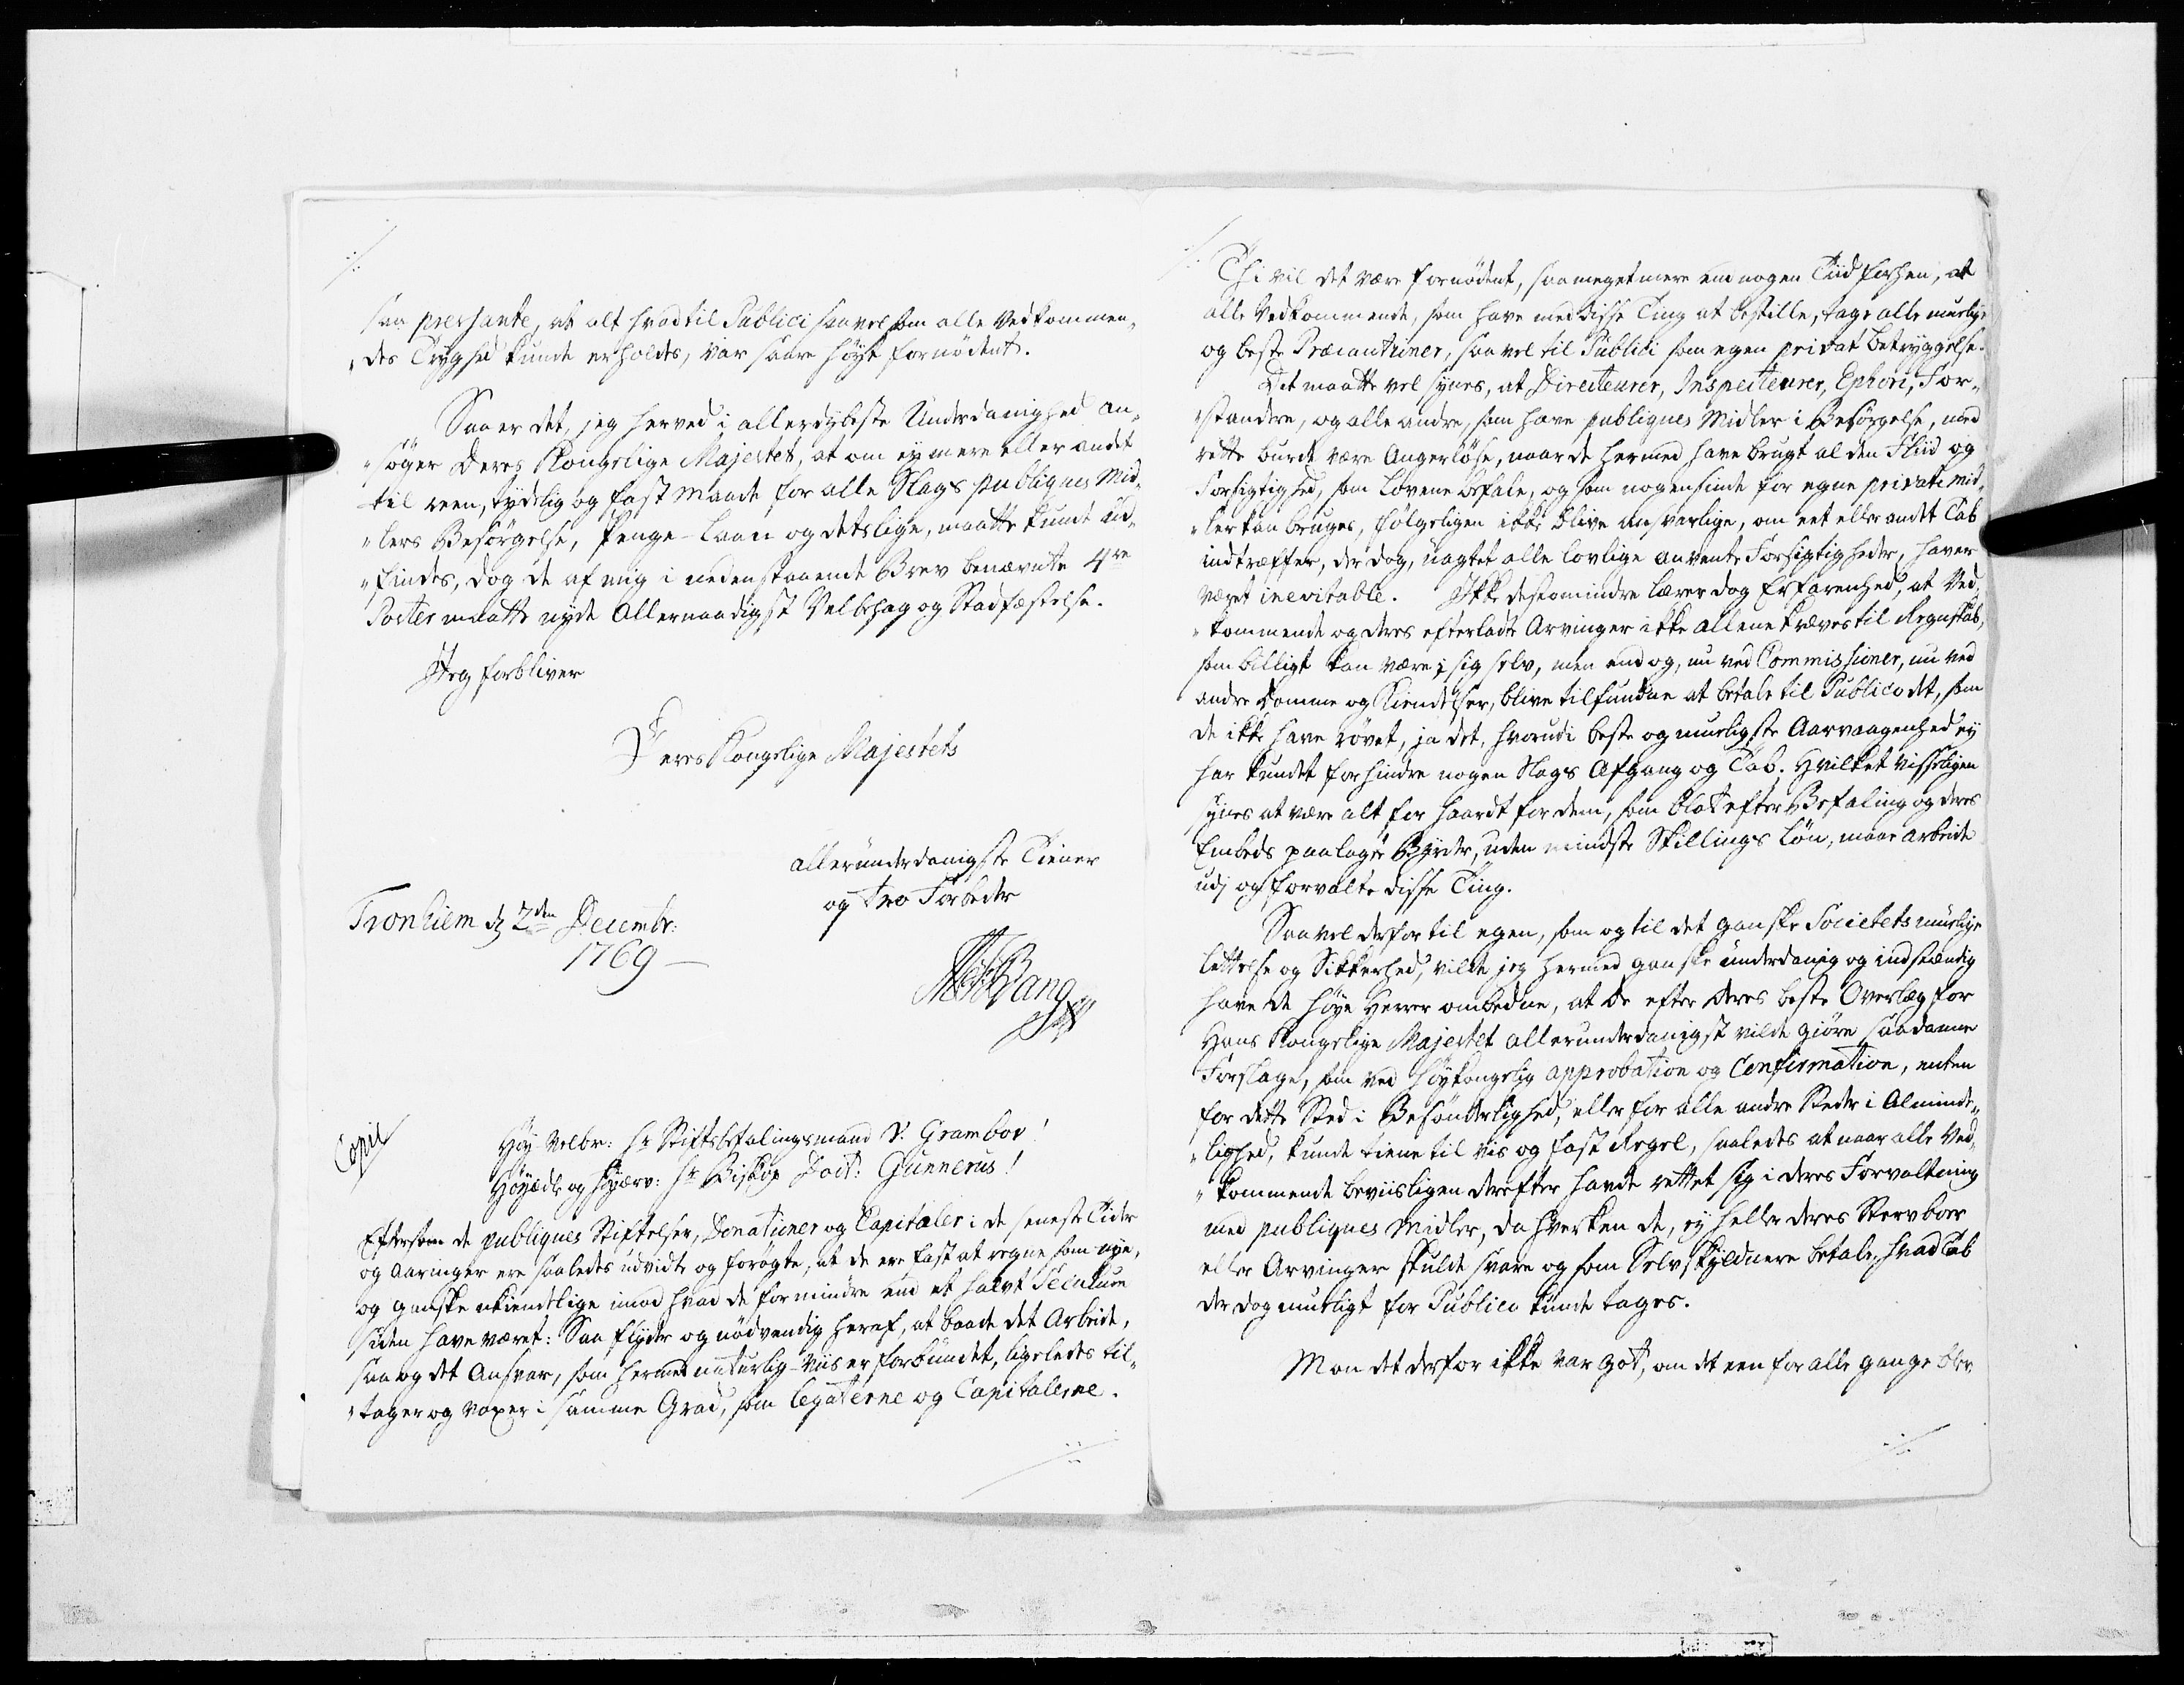 ./.
saa pressante, at alt hvad til Publici saavel som alle Vedkommen¬
„des Tryghed kunde erholdes, var saare høyst fornødent.
Saa er det, jeg herved i allerdybeste Underdanighed an¬
„søger Deres Kongelige Majestet, at om ey mere eller andet
til reen, tydelig og fast Maade for alle Slags publiques Mid¬
„lers Besørgelse, Penge-Laan og detslige, maatte kunde ud¬
„findes, dog de af mig i nedenstaaende Brev benævnte 4re
Poster maatte nyde Allernaadigst Velbehag og Stadfæstelse.
Jeg forbliver
Deres Kongelige Majestets
allerunderdanigste Tiener
og tro Forbeder
Tronhiem d. 2den Decembr:
1769 —
Bang
Copie
Høy-Velbr: Hr Stiftsbefalingsmand v. Grambow!
Høyædle og Høyærv: Hr Biskop Doct: Gunnerus!
Eftersom de publiques Stiftelser, Donationer og Capitaler i de seneste Tider
og Aaringer ere saaledes udvidte og forøgte, at de ere fast at regne som nye,
og ganske ukiendelige imod hvad de for mindre end et halvt Seculum
siden have været: Saa flyder og nødvendig heraf, at baade det Arbeide,
saa og det Ansvar, som hermed naturlig-Viis er forbundet, ligeledes til¬
„tager og voxer i samme Grad, som Legaterne og Capitalerne.
./.
./.
Thi vil det være fornødent, saa meget mere end nogen Tiid forhen, at
alle Vedkommende, som have med disse Ting at bestille, tage alle muelige
og beste Præcautioner, saa vel til Publici som egen privat Betryggelse.
Det maatte vel synes, at Directeurer, Inspecteurer, Ephori, For¬
„standere, og alle andre, som have publiques Midler i Besørgelse, med
rette burde være Angerløse, naar de hermed have brugt al den Fliid og
Forsigtighed, som Lovene befale, og som nogensinde for egne private Mid¬
„ler kan bruges, følgeligen ikke blive ansvarlige, om eet eller andet Tab
indtræffer, der dog, uagtet alle lovlige anvente Forsigtigheder, haver
været inevitable. Ikke destomindre lærer dog Erfarenhed, at Ved¬
„kommende og deres efterladte Arvinger ikke allene kræves til Regnskab,
som billigt kan være i sig selv, men end og, nu ved Commissioner, nu ved
andre Domme og Kiendelser, blive tilfundne at betale til Publico det, som
de ikke have røvet, ja det, hvorudi beste og mueligste Aarvaagenhed ey
har kundet forhindre nogen Slags Afgang og Tab. Hvilket visseligen
synes at være alt for haardt for dem, som blot efter Befaling og deres
Embeds paalagte Byrder, uden mindste Skillings Løn, maae arbeide
udj og forvalte disse Ting.
Saa vel derfor til egen, som og til det ganske Societets muelige
Lettelse og Sikkerhed, vilde jeg hermed ganske underdanig og indstændig
have de høye Herrer ombedne, at De efter Deres beste Overlæg for
Hans Kongelige Majestet allerunderdanigst vilde giøre saadanne
Forslage, som ved høykongelig approbation og Confirmation, enten
for dette Sted i Besønderlighed, eller for alle andre Steder i Alminde¬
„lighed, kunde tiene til vis og fast Regel, saaledes at naar alle Ved¬
„kommende beviisligen derefter havde rettet sig i deres Forvaltning
med publiques Midler, da hverken de, ey heller deres Stervboer
eller Arvinger skulde svare og som Selvskyldnere betale, hvad Tab
der dog mueligt for Publico kunde tages.
Mon det derfor ikke var got, om det een for alle gange blev
./.